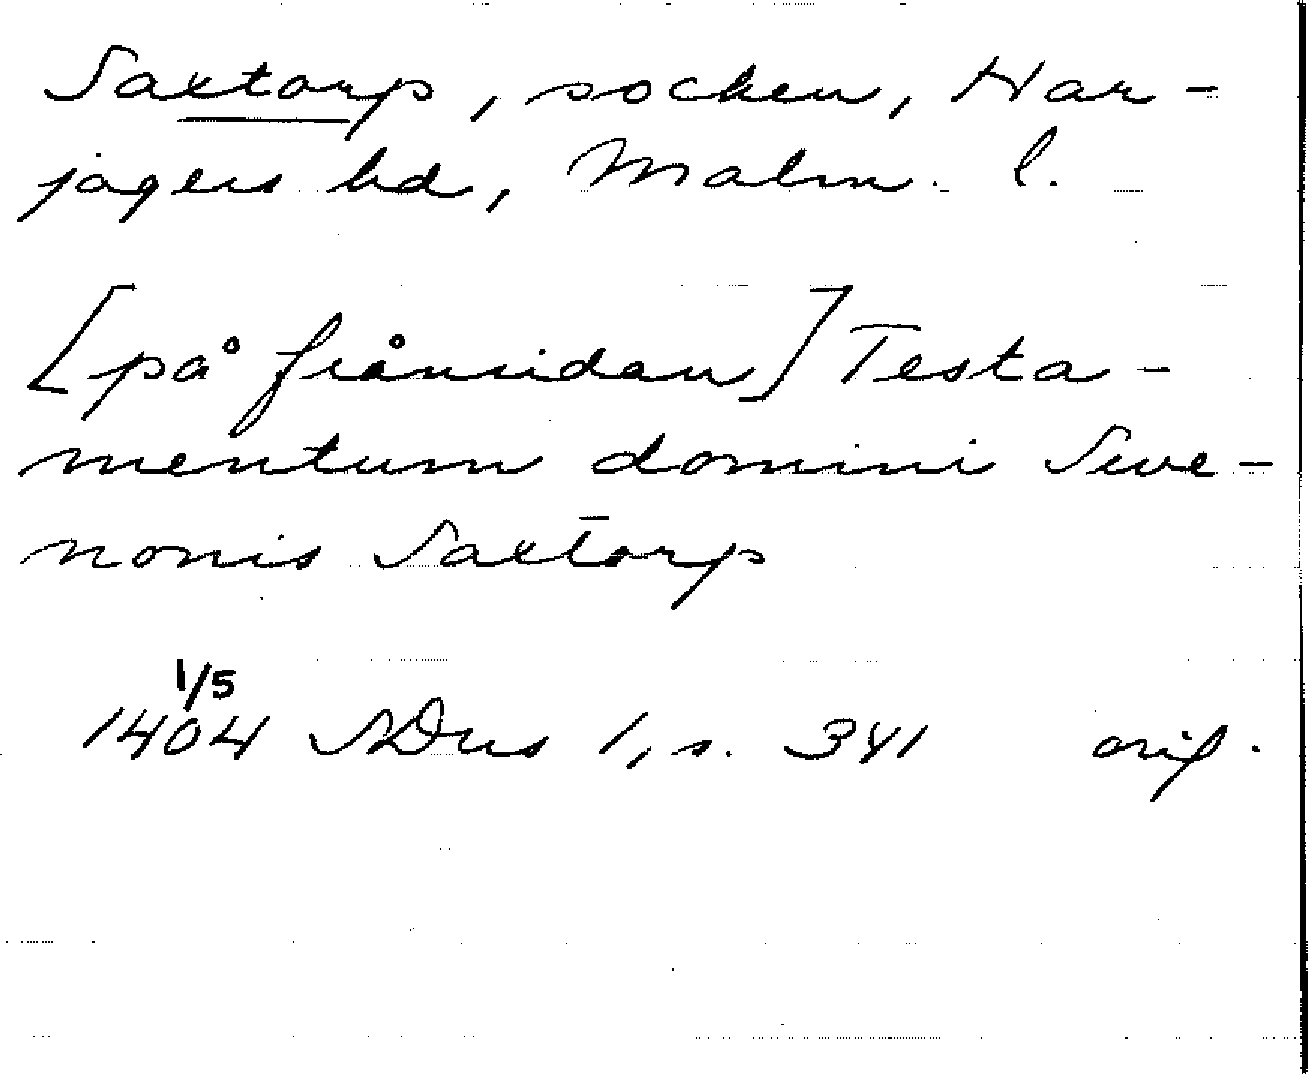 Saxtorp, socken, Har-
jagers hd, Malm. l.
[på frånsidan] Testa-
mentum domini Swe-
nonis Saxtorp
1/5
1404 SDns 1, s. 341 orig.